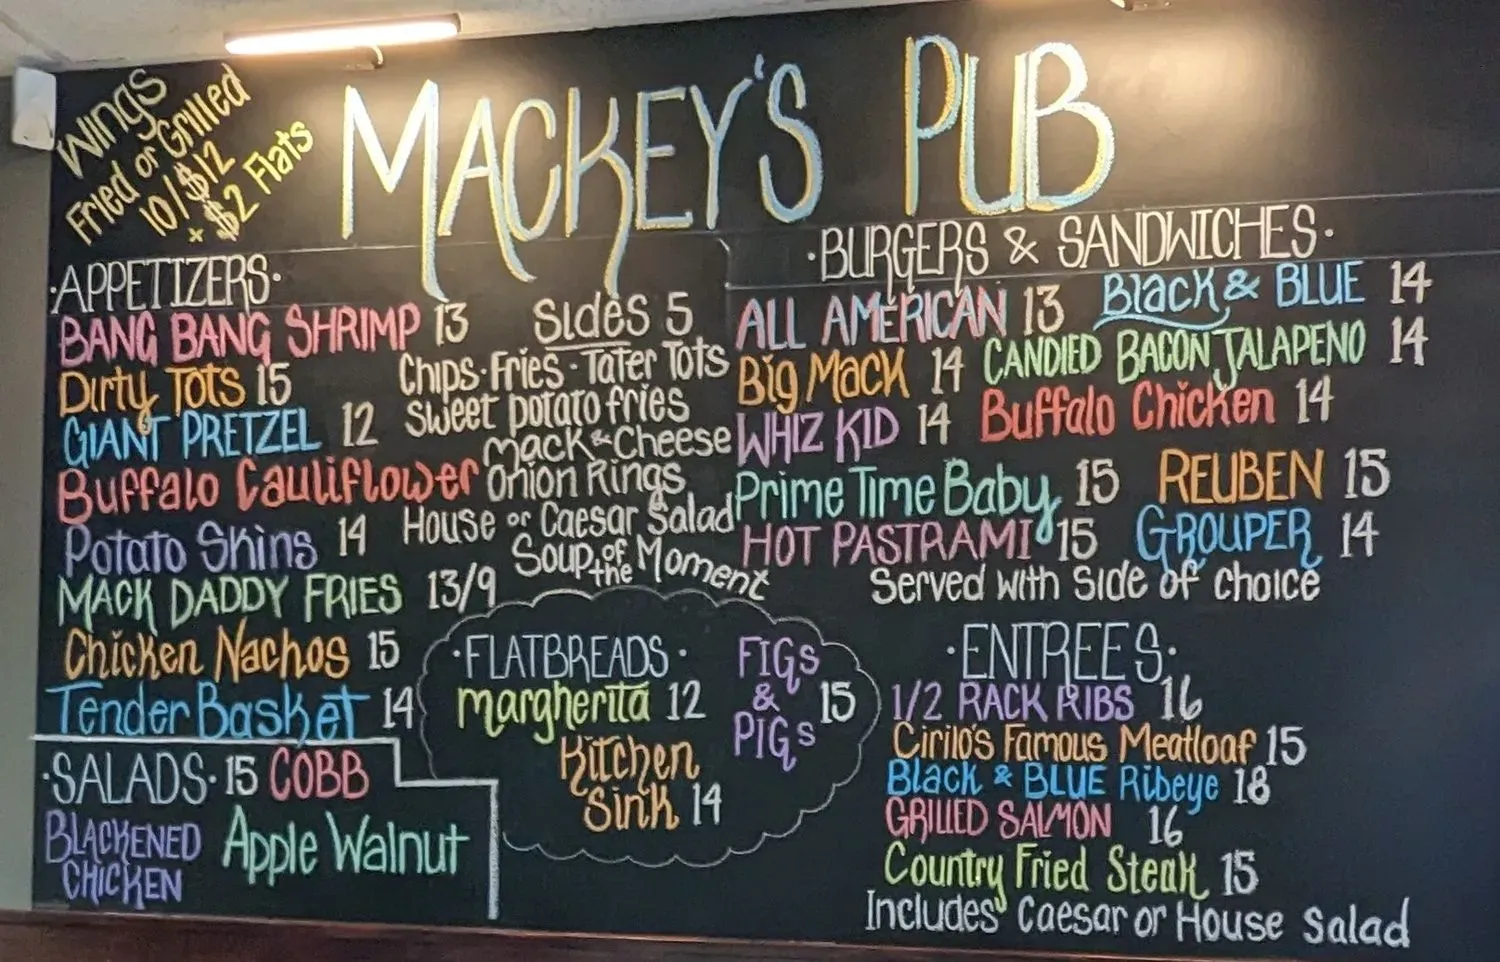 Wings
Fried or Grilled
10/$12
x $2 Flats
MACKEY'S PUB
·APPETIZERS·
BANG BANG SHRIMP 13
Dirty Tots 15
GIANT PRETZEL 12
Buffalo Cauliflower
Potato Skins 14
MACK DADDY FRIES 13/9
Chicken Nachos 15
Tender Basket 14
Sides 5
Chips·Fries·Tater Tots
Sweet potato fries
Mack & Cheese
Onion Rings
House or Caesar Salad
Soup of the Moment
·BURGERS & SANDWICHES·
ALL AMERICAN 13 Black & BLUE 14
Big Mack 14 CANDIED BACON JALAPENO 14
WHIZ KID 14 Buffalo Chicken 14
Prime Time Baby 15 REUBEN 15
HOT PASTRAMI 15 GROUPER 14
Served with Side of choice
·SALADS· 15 COBB
BLACKENED CHICKEN
Apple Walnut
·FLATBREADS·
margherita 12
Kitchen
Sink 14
FIGs
&
PIGs 15
·ENTREES·
1/2 RACK RIBS 16
Cirilo's Famous Meatloaf 15
Black & BLUE Ribeye 18
GRILLED SALMON 16
Country Fried Steak 15
Includes Caesar or House Salad